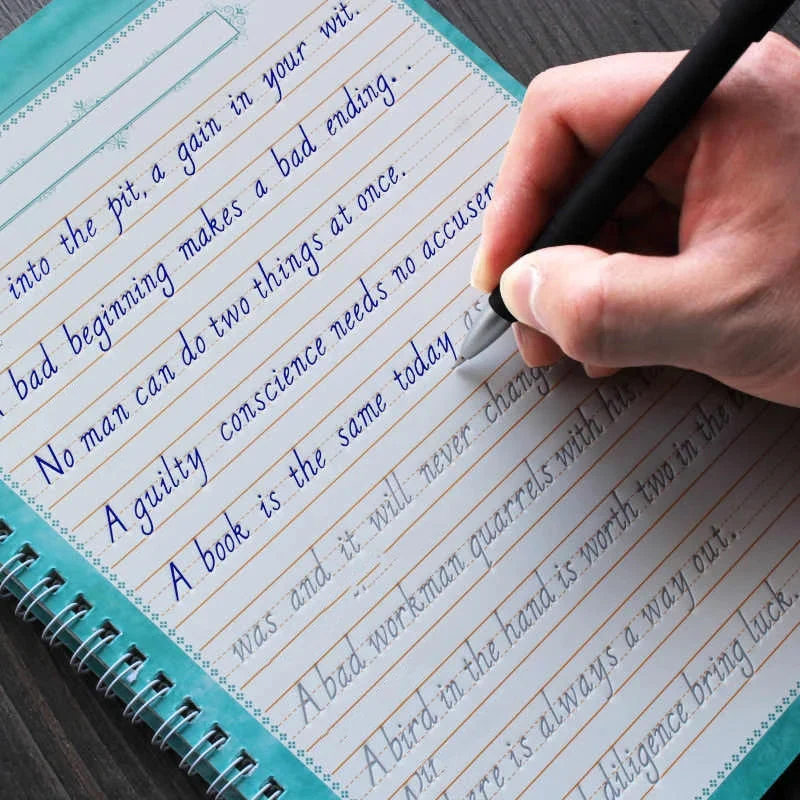 into the pit, a gain in your wit.
bad beginning makes a bad ending..
No man can do two things at once.
A guilty conscience needs no accuser
A book is the same today as
was and it will never change
A bad workman quarrels with his
A bird in the hand is worth two in the
is always a way out.
diligence bring luck.